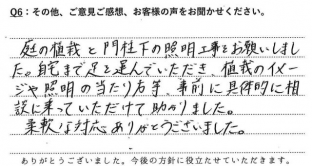 Q6：その他、ご意見ご感想、お客様の声をお聞かせください。
庭の植栽と門柱下の照明工事をお願いしまし
た。自宅まで足を運んでいただき、植栽のイメー
ジや照明の当たり方等、事前に具体的に相
談に乗っていただけて助かりました。
柔軟な対応ありがとうございました。
ありがとうございました。今後の方針に役立たせていただきます。